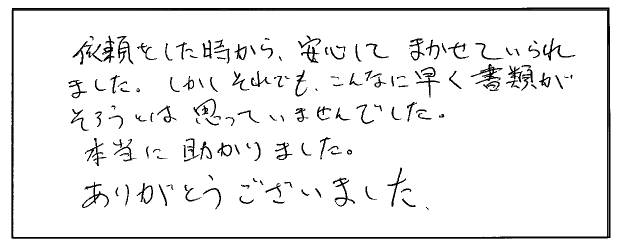 依頼をした時から、安心して まかせていられ
ました。しかしそれでも、こんなに早く書類が
そろうとは思っていませんでした。
本当に助かりました。
ありがとうございました、